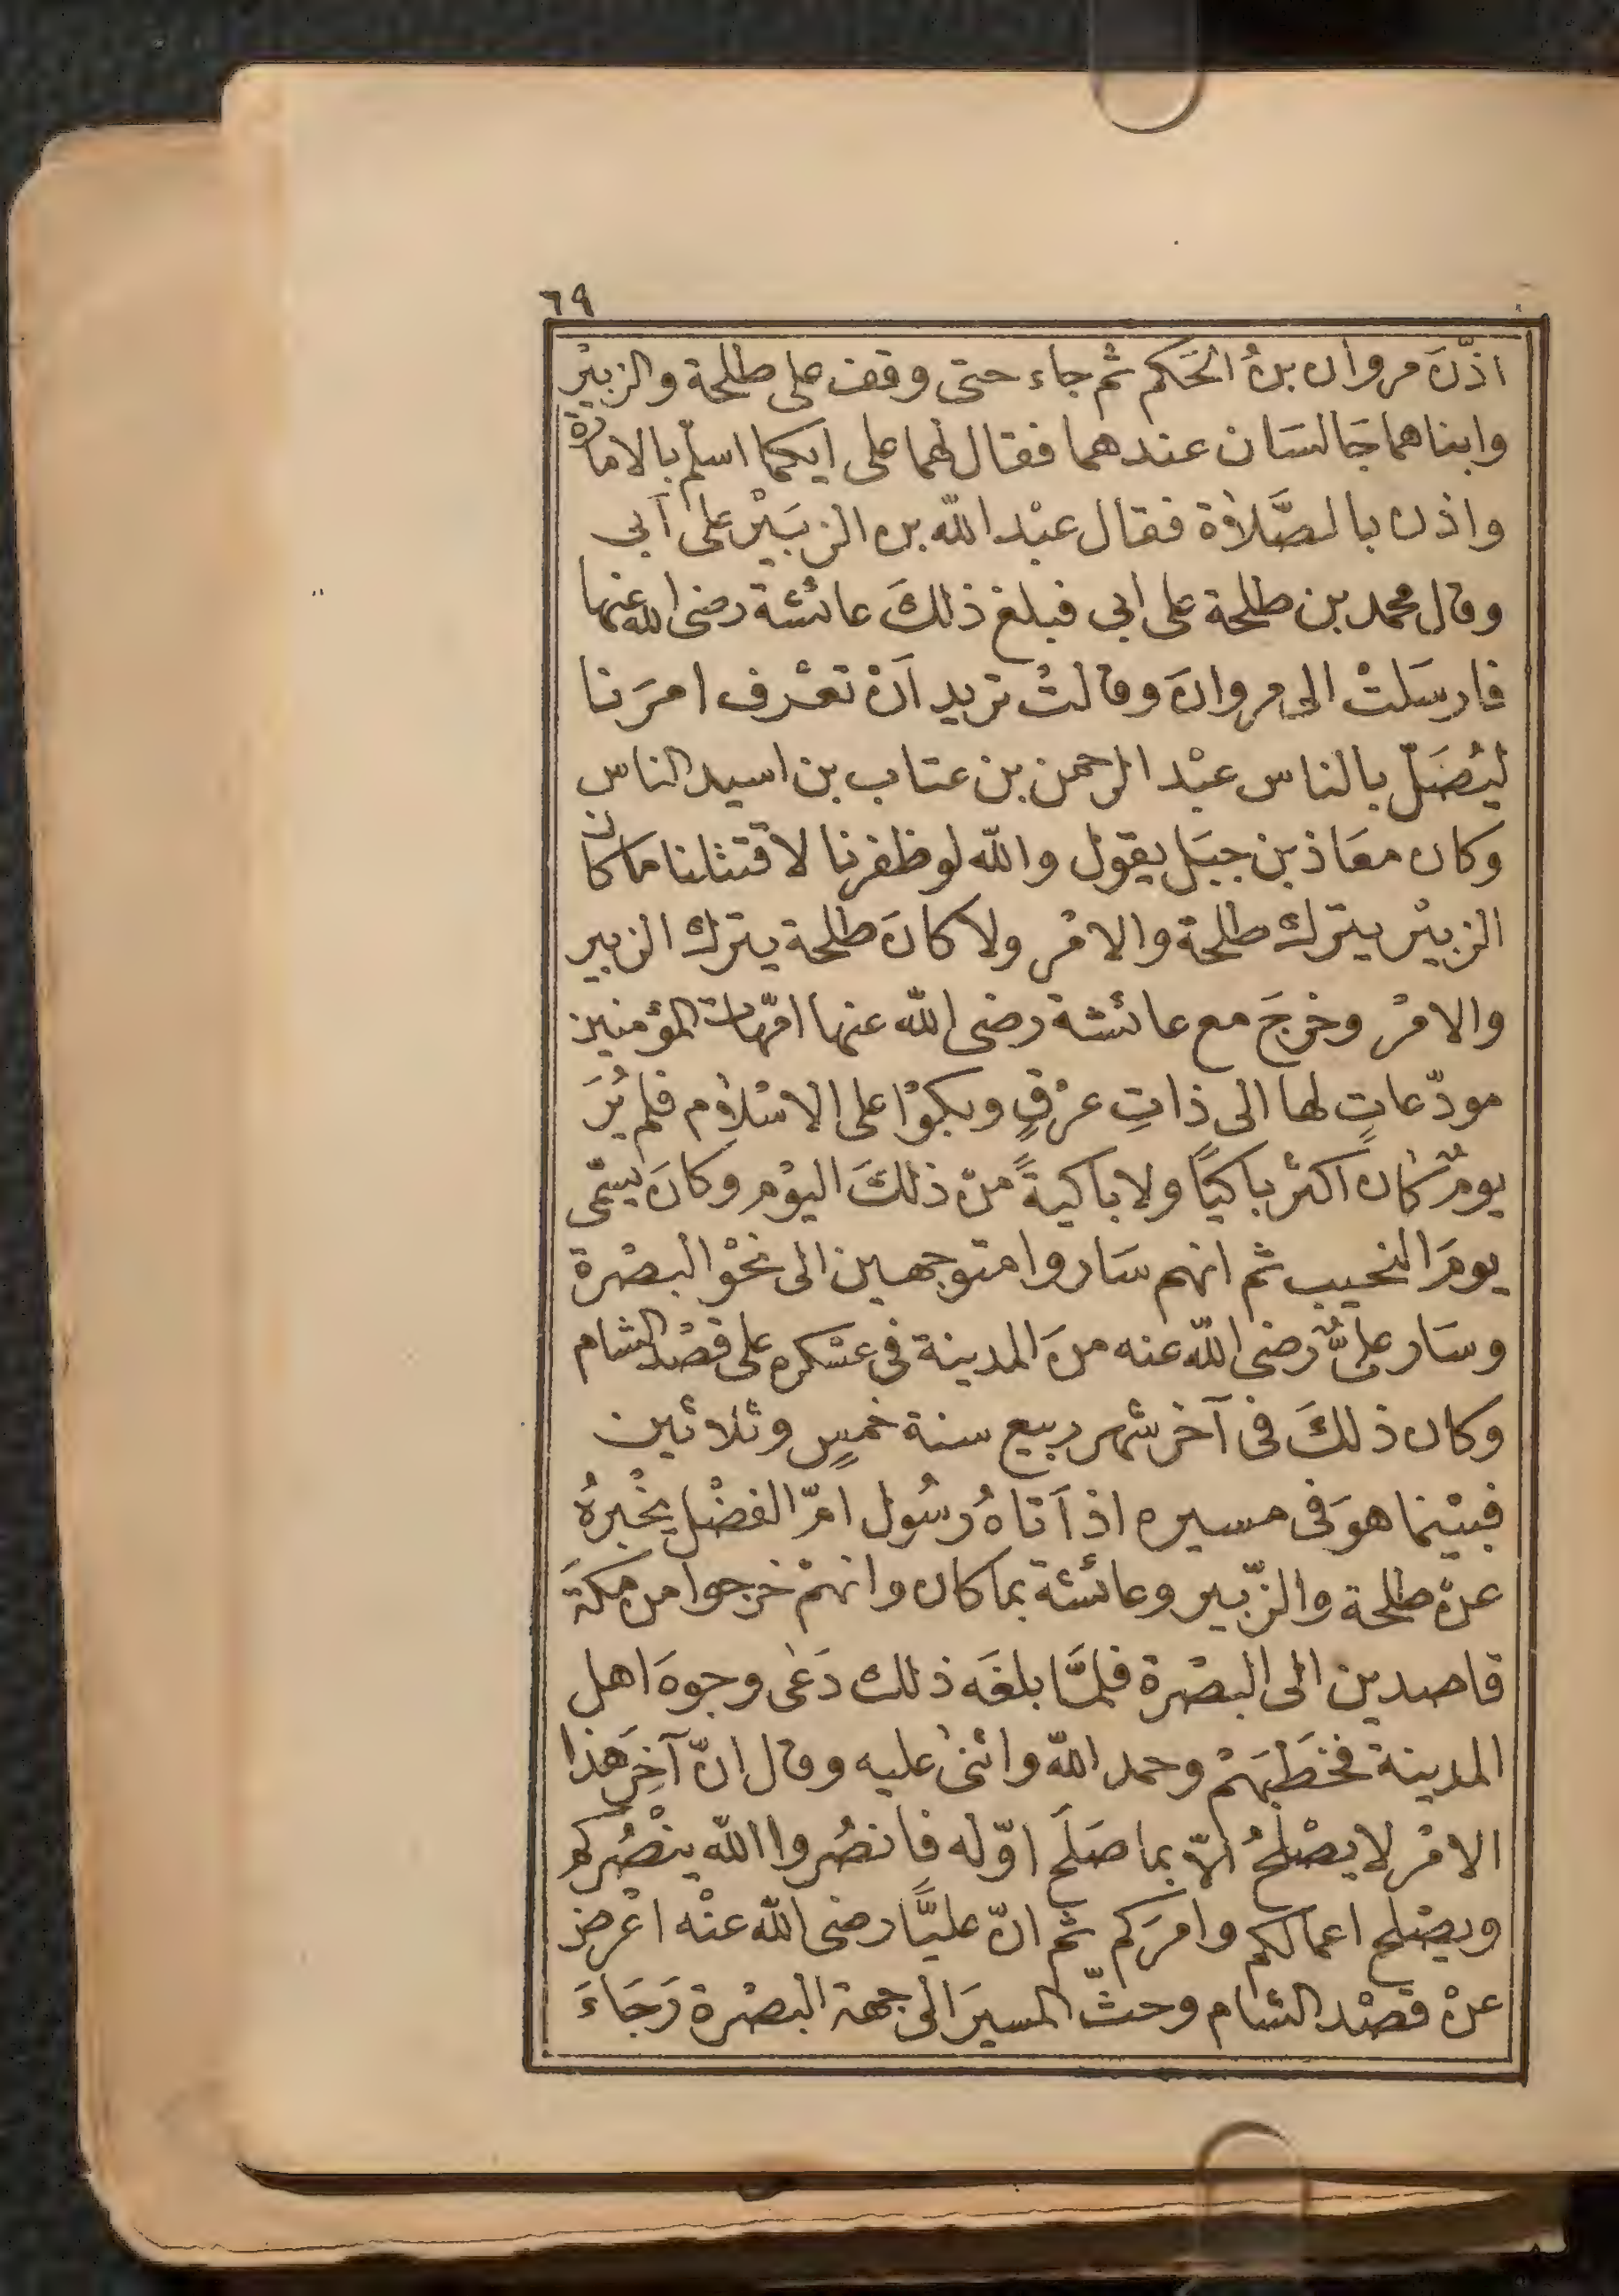 ٦٩
اذّنَ مروان بنُ الحَكم ثم جاء حتى وقف على طلحة والزبيْر
وابناهما جَالسَان عندهما فقال لهما على ايكما اسلّم بالامارة
واذن بالصَّلاة فقال عبْد الله بن الزبَيْر على أبى
وقال محمد بن طلحة على ابى فبلغ ذلكَ عائشة رضى الله عنها
فارسَلتْ الى مروانَ وقالتْ تريد اَنْ تعْرف امرَنا
ليُصَلّ بالناس عبْد الرحمن بن عتاب بن اسيد الناس
وكان معَاذ بن جبَل يقول والله لو ظفرنا لاقتتلنا ما كان
الزبيْر يترك طلحة والامْر ولا كانَ طلحة يترك الزبير
والامْر وخرجَ مع عائشة رضى الله عنها امّهات المؤمنين
مودّعاتٍ لها الى ذاتِ عرْقٍ وبكوْا على الاسْلام فلم يُرَ
يومٌ كان اكثر باكيًا ولا باكيةً منْ ذلكَ اليوْم وكانَ يسَمّى
يومَ النحيب ثم انهم سَاروا متوجهين الى نحْو البصْرة
وسَار علىٌّ رضى الله عنه منَ المدينة فى عسْكره على قصْد الشام
وكان ذلكَ فى آخر شهر ربيع سنة خمسٍ وثلاثين
فبيْنما هوَ فى مسيره اذ اَتاهُ رسُول امّ الفضْل يخْبرهُ
عنْ طلحة والزّبير وعائشة بما كان وانهمْ خرجوا من مكةَ
قاصدين الى البصْرة فلمَّا بلغَه ذلك دَعٰى وجوهَ اهل
المدينة فخطَبَهمْ وحمد الله واثنٰى عليه وقال انّ آخِرَ هٰذا
الامْر لا يصْلحُ الاّ بما صَلَح اوّله فانصُروا الله ينْصُركم
ويصْلح اعمالكم وامرَكم ثم انّ عليًّا رضى الله عنْه اعْرض
عنْ قصْد الشام وحثّ المسيرَ الى جهة البصْرة رَجَاءَ